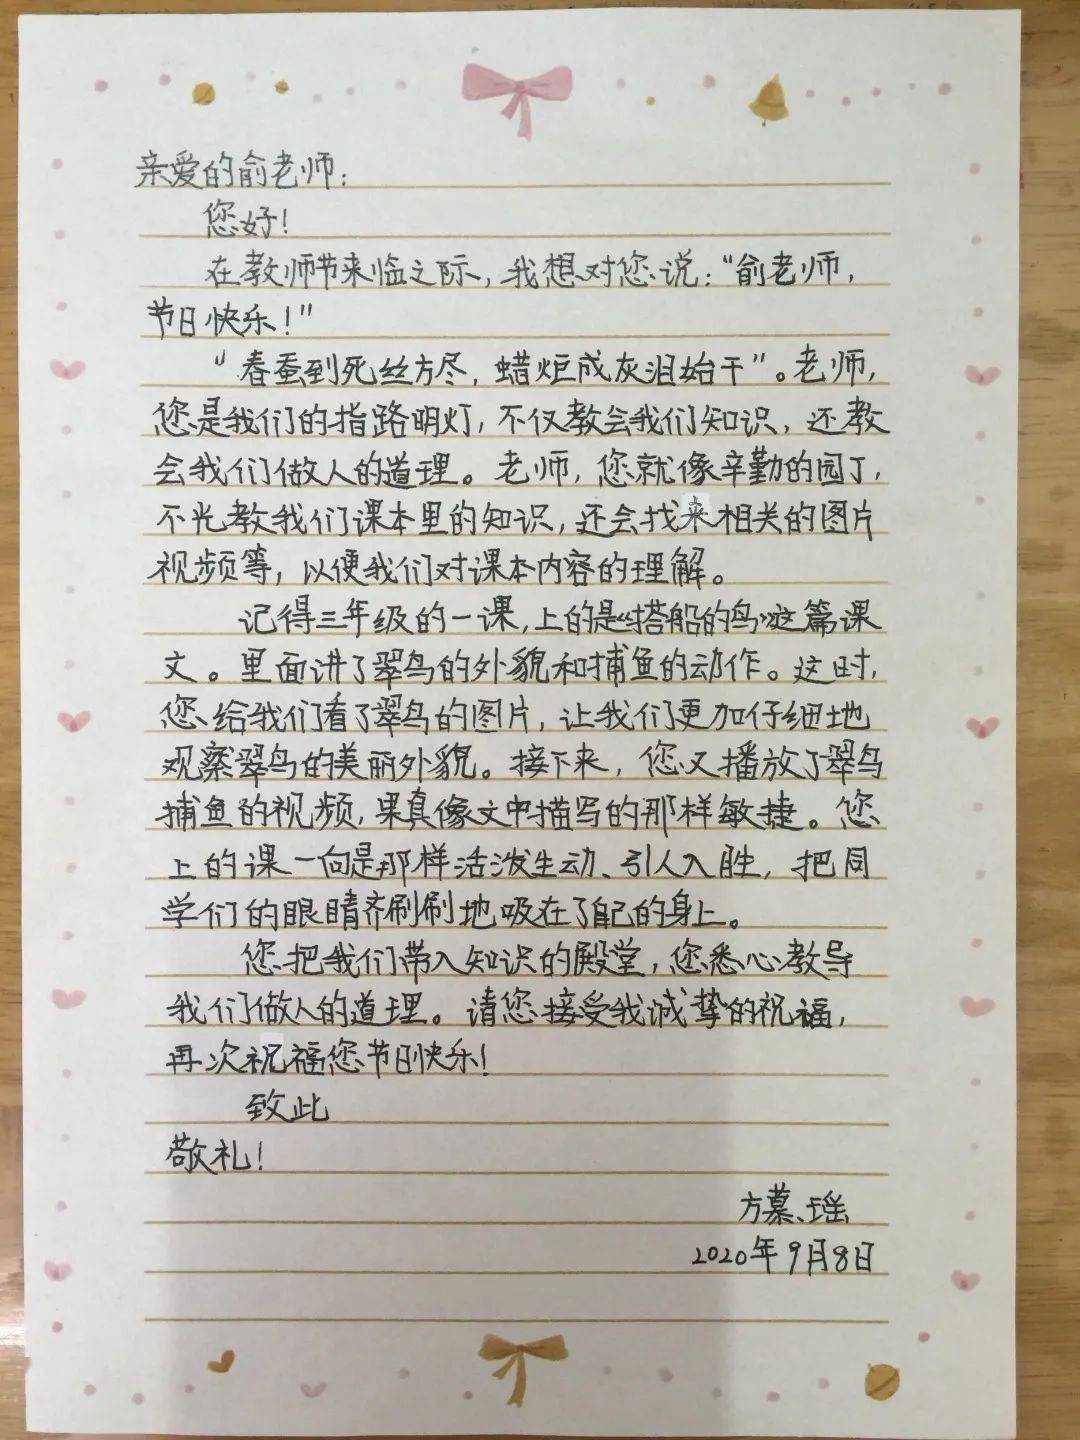 亲爱的俞老师：
您好！
在教师节来临之际，我想对您说：“俞老师，
节日快乐！”
“春蚕到死丝方尽，蜡炬成灰泪始干”。老师，
您是我们的指路明灯，不仅教会我们知识，还教
会我们做人的道理。老师，您就像辛勤的园丁，
不光教我们课本里的知识，还会找来相关的图片
视频等，以便我们对课本内容的理解。
记得三年级的一课，上的是《搭船的鸟》这篇课
文。里面讲了翠鸟的外貌和捕鱼的动作。这时，
您给我们看了翠鸟的图片，让我们更加仔细地
观察翠鸟的美丽外貌。接下来，您又播放了翠鸟
捕鱼的视频，果真像文中描写的那样敏捷。您
上的课一向是那样活泼生动、引人入胜，把同
学们的眼睛齐刷刷地吸在了自己的身上。
您把我们带入知识的殿堂，您悉心教导
我们做人的道理。请您接受我诚挚的祝福，
再次祝福您节日快乐！
致此
敬礼！
方慕瑶
2020年9月8日